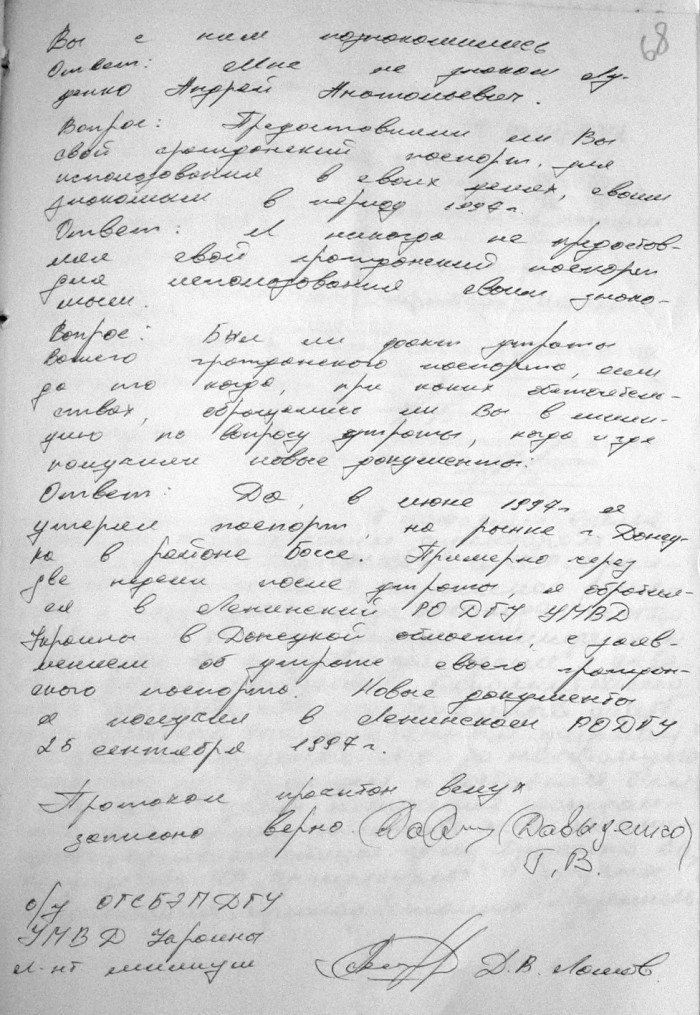 68
Вы с ним познакомились
Ответ: Мне не знаком Лу-
ценко Андрей Анатольевич.
Вопрос: Предоставляли ли Вы
свой гражданский паспорт для
использования в своих целях, своим
знакомым в период 1997 г.
Ответ: Я никогда не предостав-
лял свой гражданский паспорт
для использования своим знако-
мым.
Вопрос: Был ли факт утраты
вашего гражданского паспорта, если
да то когда, при каких обстоятель-
ствах, обращались ли Вы в мили-
цию по вопросу утраты, когда и где
получили новые документы.
Ответ: Да, в июне 1997 г я
утерял паспорт на рынке г. Донец-
ка в районе Боссе. Примерно через
две недели после утраты я обратил-
ся в Ленинский РО ДГУ УМВД
Украины в Донецкой области, с заяв-
лением об утрате своего граждан-
ского паспорта. Новые документы
я получил в Ленинском РО ДГУ
25 сентября 1997 г.
Протокол прочитан вслух
записано верно. (Давыденко)
Г.В.
о/у ОГСБЭП ДГУ
УМВД Украины
л-нт милиции Д.В.